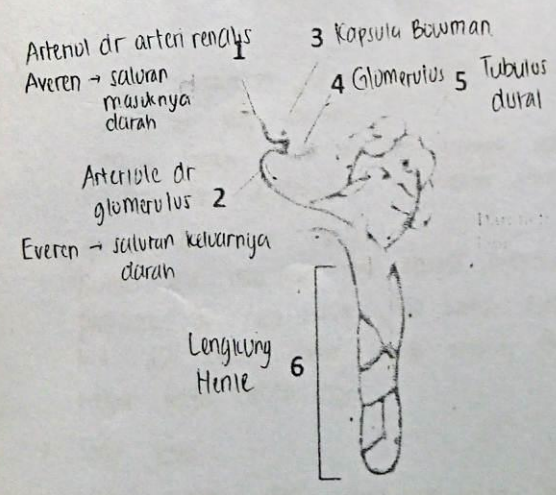 Arteriol dr arteri renalis
1
Averen → saluran
masuknya
darah
3 Kapsula Bowman
4 Glomerulus
5 Tubulus
distal
Arteriole dr
glomerulus 2
Everen → saluran keluarnya
darah
Lengkung
Henle
6